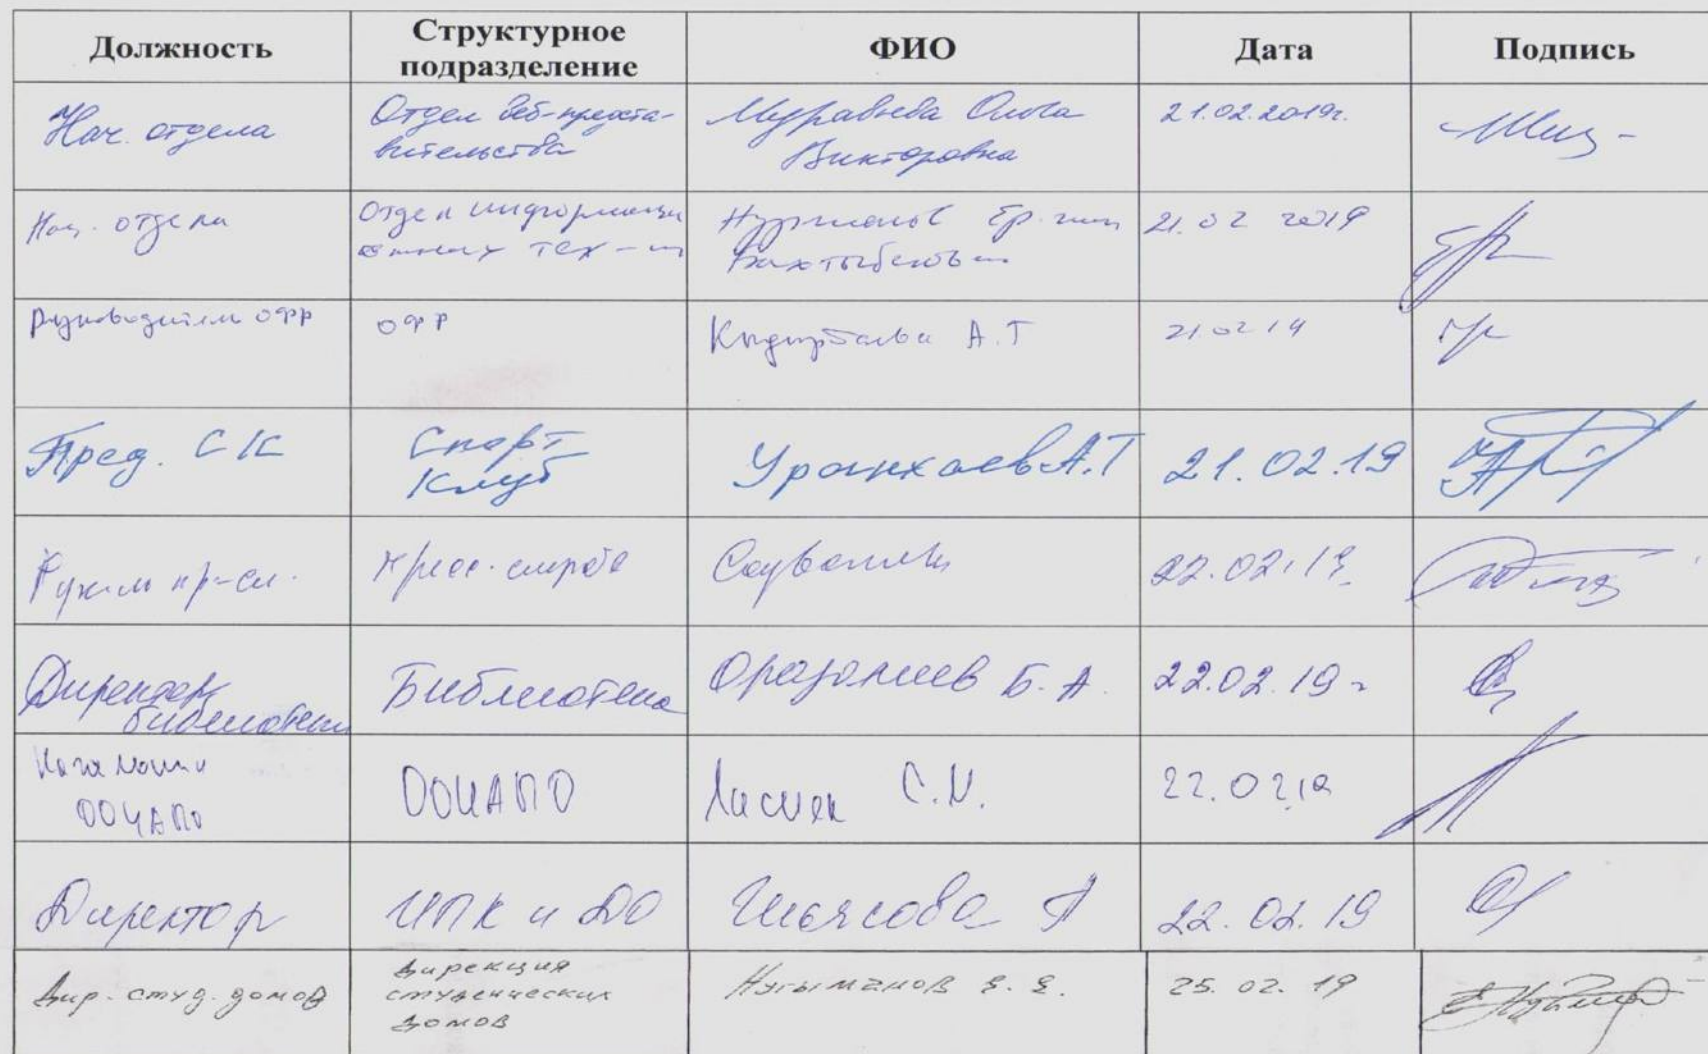 Должность Структурное подразделение ФИО Дата Подпись
Нач. отдела
Отдел веб-предста-
вительства
Муравьева Ольга
Викторовна
21.02.2019г.
Нач. отдела
Отдел информаци
онных тех-
21.02 2019
Руководитель ОФР
ОФР
А.Т
21.02.19
Пред. СК
Спорт
Клуб
Уранхаев А.Т
21.02.19
пресс-служба
22.02.19
Директор
библиотеки
Библиотека
Оразалиев Б.А.
22.02.19г
ООЦАПО
С.
22.02.19
Директор
ИПК и ДО
Ильясова А
22.02.19
Дир. студ. домов
Дирекция
студенческих
домов
Нугыманов Е.Е.
25.02.19